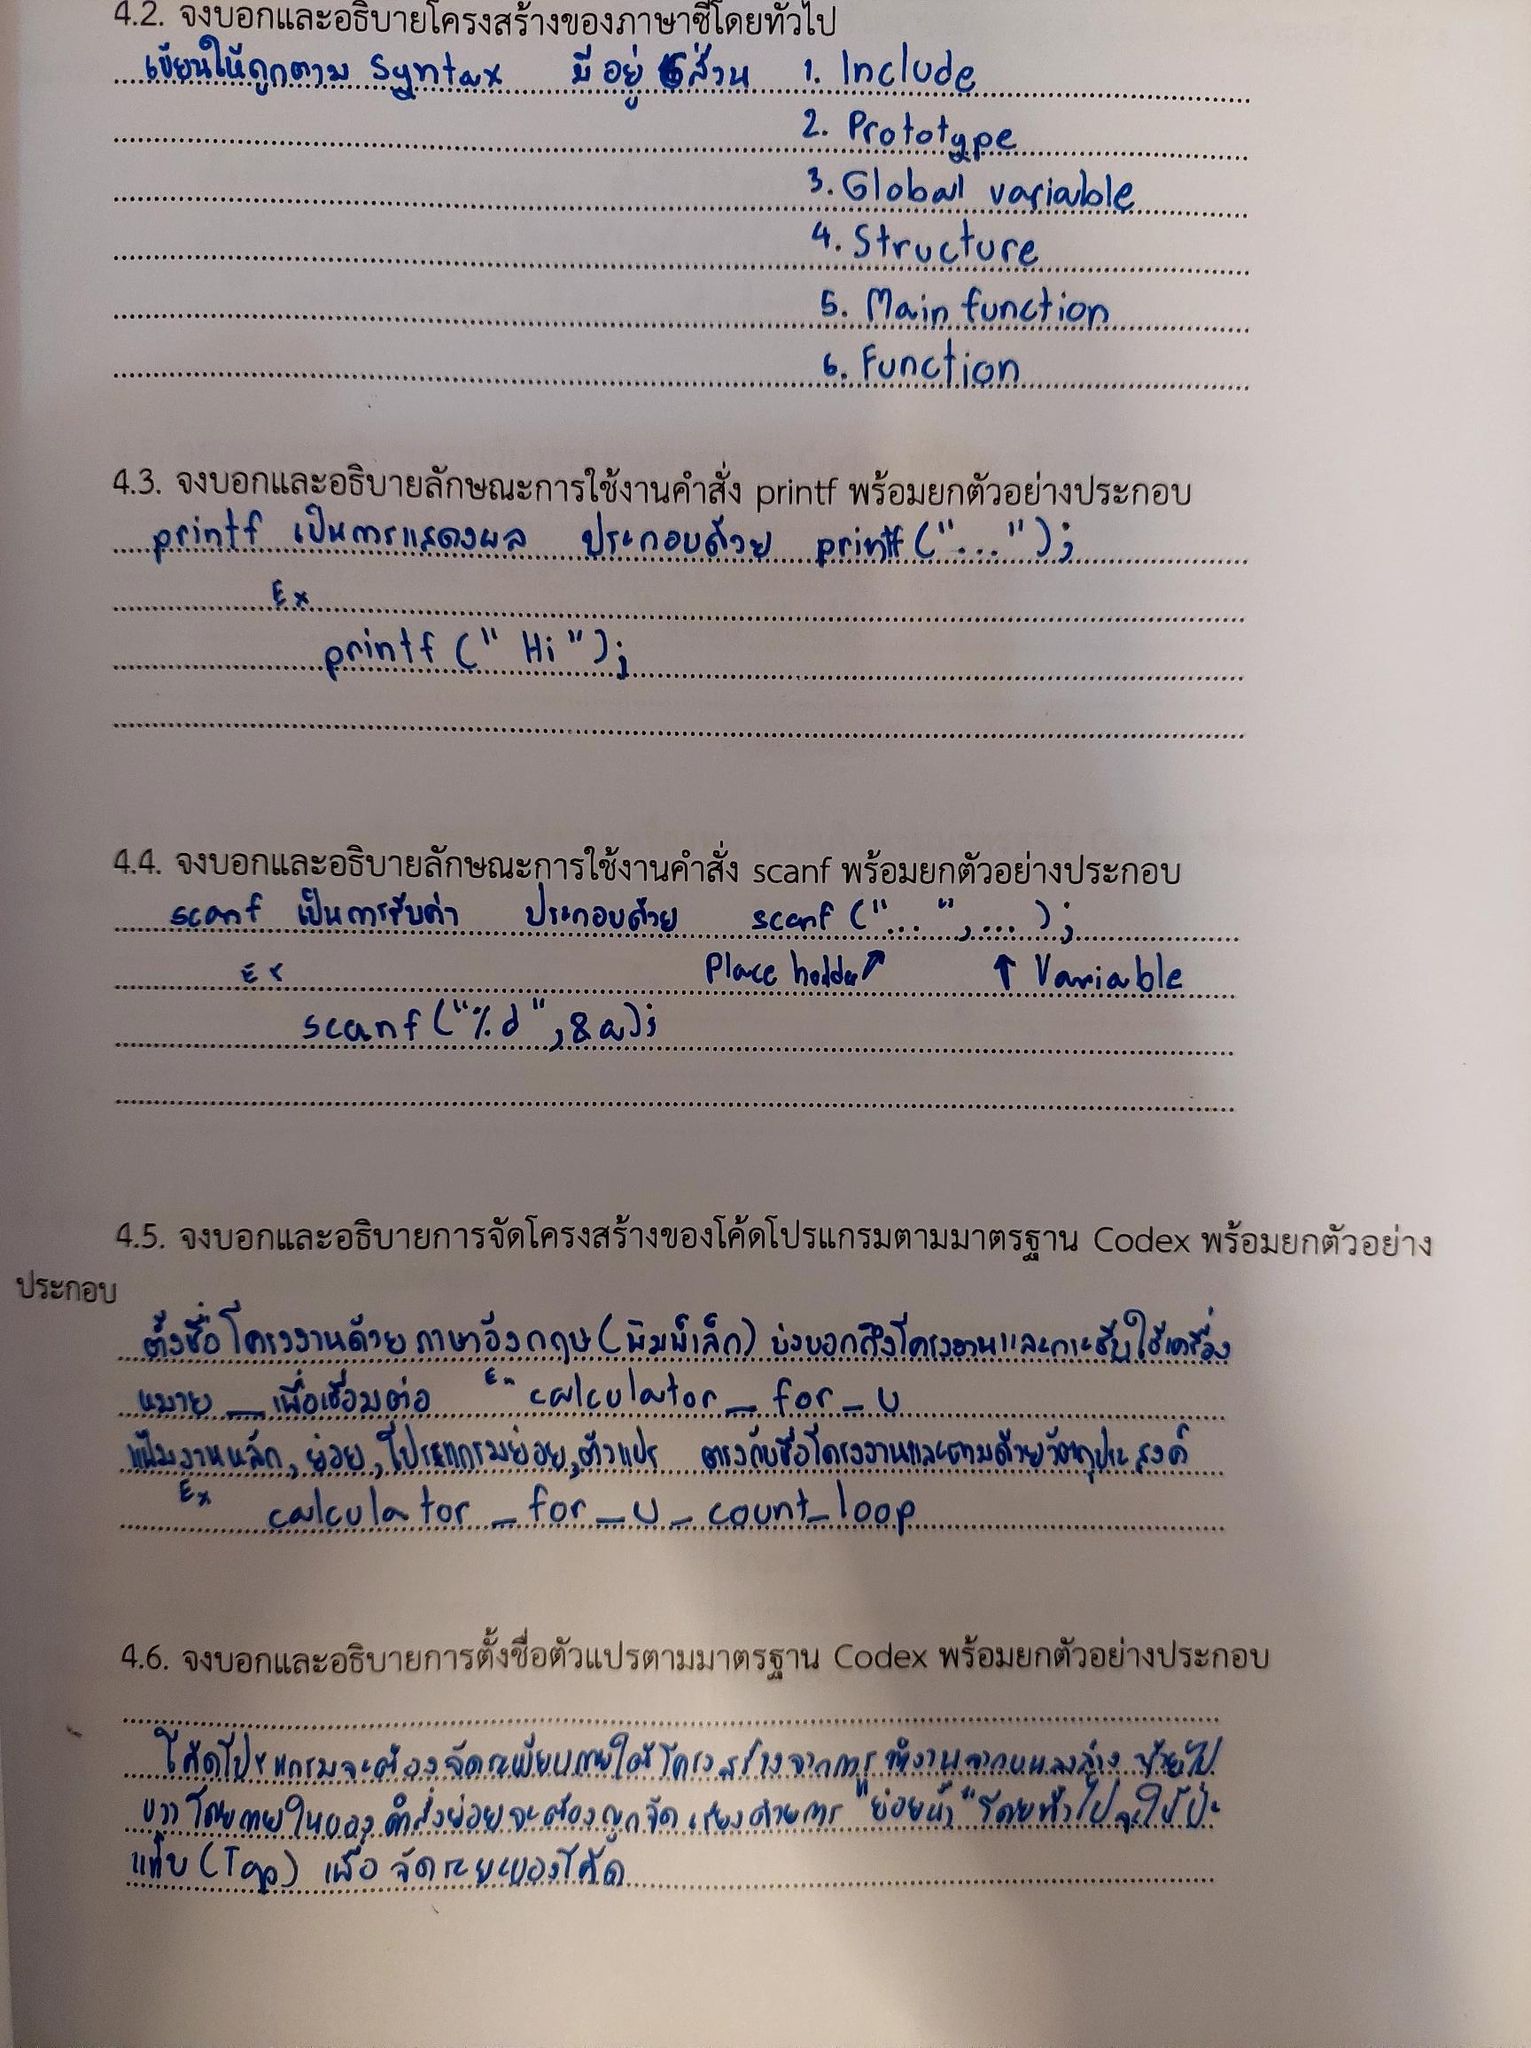 4.2. จงบอกและอธิบายโครงสร้างของภาษาซีโดยทั่วไป
เขียนให้ถูกตาม Syntax มีอยู่ 6 ส่วน 1. Include
2. Prototype
3. Global variable
4. Structure
5. Main function
6. Function
4.3. จงบอกและอธิบายลักษณะการใช้งานคำสั่ง printf พร้อมยกตัวอย่างประกอบ
printf เป็นการแสดงผล ประกอบด้วย printf("...");
Ex
printf (" Hi ");
4.4. จงบอกและอธิบายลักษณะการใช้งานคำสั่ง scanf พร้อมยกตัวอย่างประกอบ
scanf เป็นการรับค่า ประกอบด้วย scanf ("...",...);
Ex Place holder ↑ ↑ Variable
scanf ("%d", &a);
4.5. จงบอกและอธิบายการจัดโครงสร้างของโค้ดโปรแกรมตามมาตรฐาน Codex พร้อมยกตัวอย่าง
ประกอบ
ตั้งชื่อโครงงานด้วยภาษาอังกฤษ (พิมพ์เล็ก) บ่งบอกถึงโครงงานและกระชับใช้เครื่อง
หมาย _ เพื่อเชื่อมต่อ Ex calculator_for_u
แฟ้มงานหลัก, ย่อย, โปรแกรมย่อย, ตัวแปร ตรงกับชื่อโครงงานและตามด้วยวัตถุประสงค์
Ex calculator_for_u_count_loop
4.6. จงบอกและอธิบายการตั้งชื่อตัวแปรตามมาตรฐาน Codex พร้อมยกตัวอย่างประกอบ
โค้ดโปรแกรมจะต้องจัดระเบียบภายใต้โครงสร้างจากการทำงานจากบนลงล่าง ซ้ายไป
ขวา โดยภายในของคำสั่งย่อยจะต้องถูกจัดเรียงด้วยการ "ย่อหน้า" โดยทั่วไปจะใช้ปุ่ม
แท็บ (Tab) เพื่อจัดระยะของโค้ด